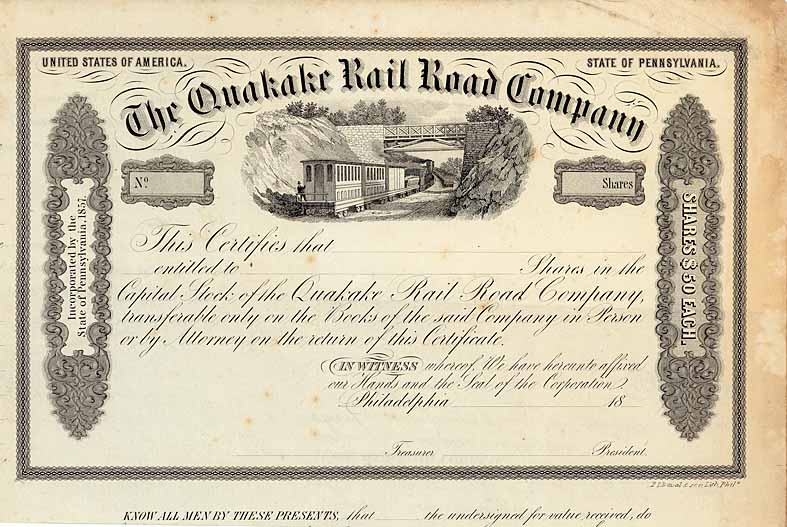 UNITED STATES OF AMERICA.
STATE OF PENNSYLVANIA.
The Quakake Rail Road Company
No.
Shares
Incorporated by the
State of Pennsylvania, 1857.
SHARES $50 EACH.
This Certifies that
entitled to Shares in the
Capital Stock of the Quakake Rail Road Company,
transferable only on the Books of the said Company in Person
or by Attorney on the return of this Certificate.
IN WITNESS whereof, We have hereunto affixed
our Hands and the Seal of the Corporation,
Philadelphia 18
Treasurer President.
Lith. Phila
KNOW ALL MEN BY THESE PRESENTS, that the undersigned for value received, do